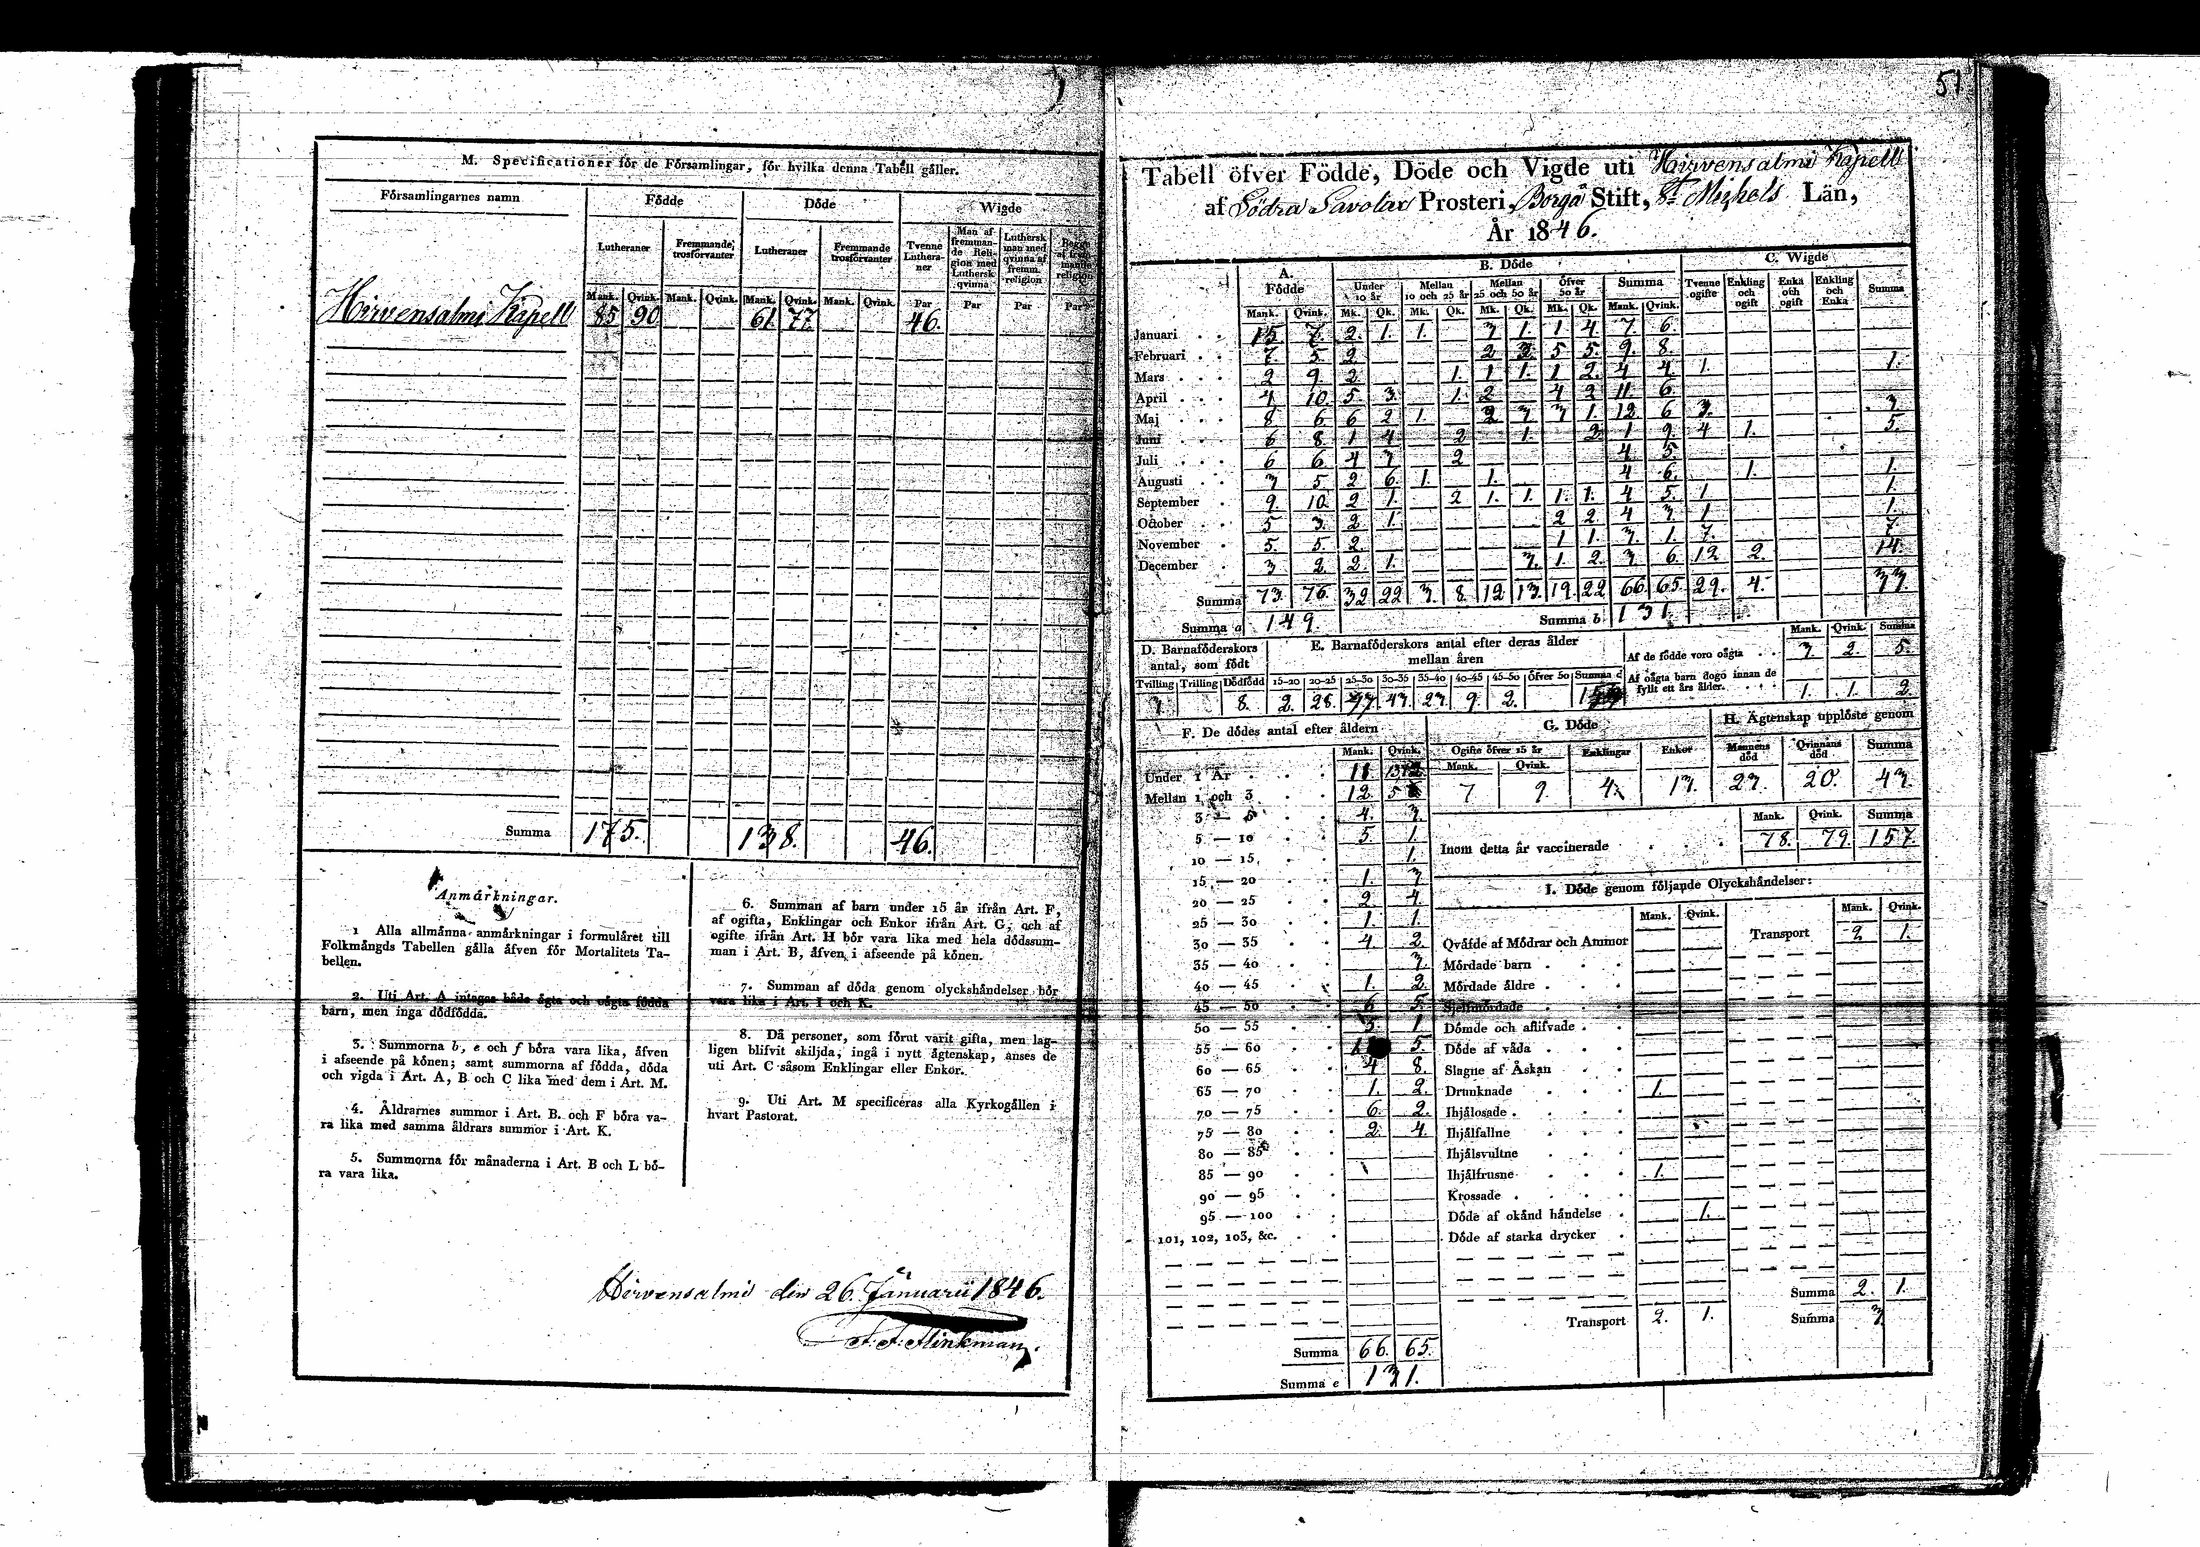 M. Specificationer för de Församlingar, för hvilka denna Tabell gäller.
Församlingarnes namn
Födde
Döde
Wigde
Lutheraner
Fremmande trosförvanter
Lutheraner
Fremmande trosförvanter
Tvenne Lutheraner
Man af fremmande Religion med Luthersk qvinna
Luthersk man med qvinna af fremm. religion
Mank. Qvink. Mank. Qvink. Mank. Qvink. Mank. Qvink. Par Par Par Par
Hirvensalmi Kapell 85 90 61 77 46.
Summa 175. 138. 46.
Anmärkningar.
1 Alla allmänna anmärkningar i formuläret till
Folkmängds Tabellen gälla äfven för Mortalitets Ta-
bellen.
2. Uti Art. A intages både ägta och oägta födda
barn, men inga dödfödda.
3. Summorna b, e och f böra vara lika, äfven
i afseende på könen; samt summorna af födda, döda
och vigda i Art. A, B och C lika med dem i Art. M.
4. Åldrarnes summor i Art. B. och F böra va-
ra lika med samma åldrars summor i Art. K.
5. Summorna för månaderna i Art. B och L bö-
ra vara lika.
6. Summan af barn under 15 år ifrån Art. F,
af ogifta, Enklingar och Enkor ifrån Art. G, och af
ogifte ifrån Art. H bör vara lika med hela dödssum-
man i Art. B, äfven i afseende på könen.
7. Summan af döda genom olyckshändelser bör
vara lika i Art. I och K.
8. Då personer, som förut varit gifta, men lag-
ligen blifvit skiljda, ingå i nytt ägtenskap, anses de
uti Art. C såsom Enklingar eller Enkor.
9. Uti Art. M specificeras alla Kyrkogällen i
hvart Pastorat.
Hirvensalmi den 26. Januarii 1846.
51
Tabell öfver Födde, Döde och Vigde uti Hirvensalmi Kapell
af Södra Savolax Prosteri, Borgå Stift, St Michels Län,
År 1846.
A. Födde
B. Döde
C. Wigde
Under 10 år
Mellan 10 och 25 år
Mellan 25 och 50 år
Öfver 50 år
Summa
Tvenne ogifte
Enkling och ogift
Enka och ogift
Enkling och Enka
Summa
Mank. Qvink. Mk. Qk. Mk. Qk. Mk. Qk. Mk. Qk. Mank. Qvink.
Januari 15. 7. 2. 1. 1. 3 1. 1 4. 7. 6.
Februari 7. 5. 2 2 3 5 5. 9. 8.
Mars 2 9. 2 1. 1 1. 1 2. 4 4 1. 1.
April 4 10. 5. 3. 1. 2 4 2 11 6.
Maj 8 6 6 2 1 2 3 3 1. 12 6 3. 3
Juni 6 8 1 4 2 1. 2 1 9. 4 1. 5.
Juli 6 6. 4 3 2 4 5.
Augusti 3 5 2 6. 1. 1. 4 6. 1. 1.
September 9. 10. 2 1. 2 1. 1. 1. 1. 4 5. 1. 1.
October 5 3. 2 1. 2 2. 4 3. 1 1.
November 5. 5. 2. 1 1. 3. 1. 7. 7.
December 3 2. 2. 1. 3. 1. 2. 3 6. 12 2. 14.
Summa 73. 76. 32 22 3. 8. 12 13. 19. 22 66. 65. 29. 4. 33.
Summa a 149. Summa b 131.
D. Barnaföderskors antal, som födt
E. Barnaföderskors antal efter deras ålder mellan åren
Mank. Qvink. Summa
Af de födde voro oägta 3. 2. 5.
Tvilling Trilling Dödfödd 15-20 20-25 25-30 30-35 35-40 40-45 45-50 Öfver 50
Af oägta barn dogo innan de
fyllt ett års ålder. 1. 1. 2.
8. 2. 28. 43. 23. 9. 2.
F. De dödes antal efter åldern
Mank. Qvink.
Under 1 År 11
Mellan 1 och 3 12 5
3 — 5 4. 3.
5 — 10 5. 1.
10 — 15 1.
15 — 20 1. 3
20 — 25 2. 4.
25 — 30 1. 1.
30 — 35 4. 2.
35 — 40 3.
40 — 45 1. 2.
45 — 50 6 5.
50 — 55 3. 1
55 — 60 5.
60 — 65 4 8.
65 — 70 1. 2.
70 — 75 6. 2.
75 — 80 2. 4.
80 — 85
85 — 90
90 — 95
95 — 100
101, 102, 103, &c.
Summa 66. 65.
Summa e 131.
G. Döde
Ogifte öfver 15 år Enklingar Enkor
Mank. Qvink.
7 9. 4. 13.
H. Ägtenskap upplöste genom
Mannens död Qvinnans död Summa
23. 20. 43.
Mank. Qvink. Summa
Inom detta år vaccinerade 78. 79. 157.
I. Döde genom följande Olyckshändelser:
Mank. Qvink. Mank. Qvink.
Qväfde af Mödrar och Ammor
Transport 2 1.
Mördade barn
Mördade äldre
Sjelfmördade
Dömde och aflifvade
Döde af våda
Slagne af Åskan
Drunknade 1.
Ihjälosade
Ihjälfallne
Ihjälsvultne
Ihjälfrusne 1.
Krossade
Döde af okänd händelse 1.
Döde af starka drycker
Summa 2. 1.
Transport 2. 1.
Summa 3